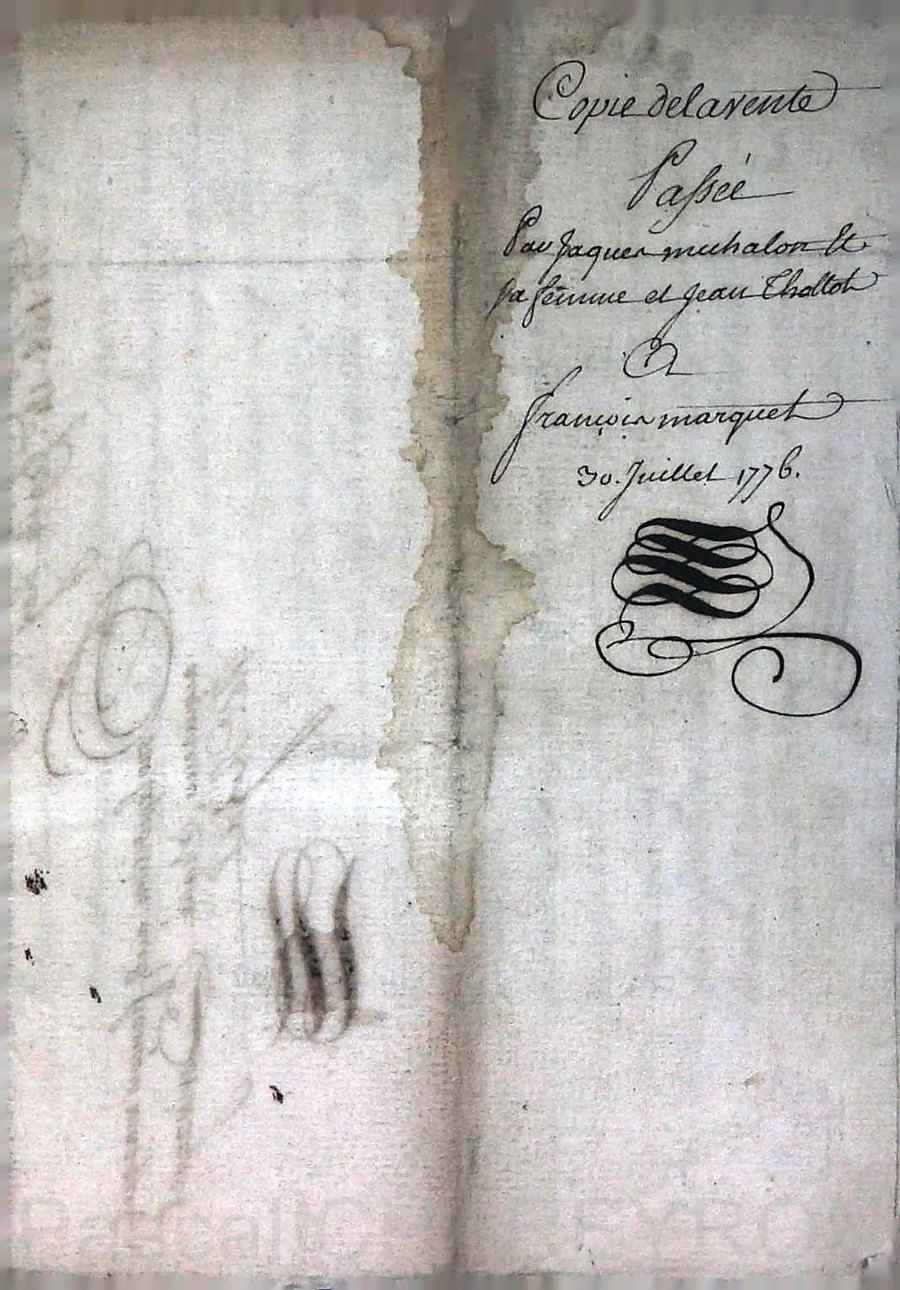 Copie de la vente
Passée
Par Jaques michalon Et
sa femme et Jean Thollot
A
françois marquet
30. Juillet 1776.